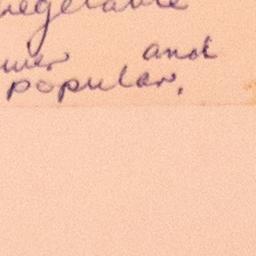 vegetable
and
popular,